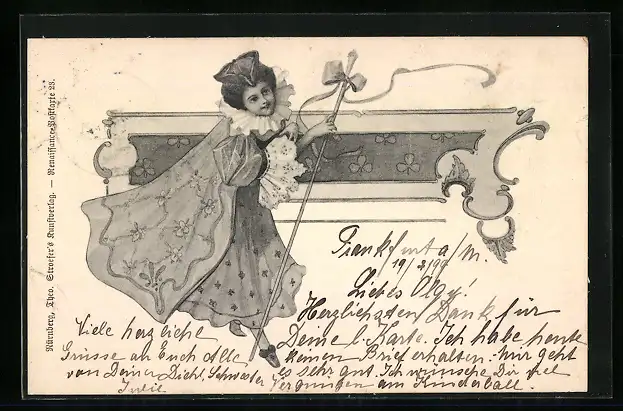 Nürnberg, Theo. Stroefer's Kunstverlag. — Renaissance-Postkarte 23.
Frankfurt a/M.
19/2/99
Liebes Olgy!
Herzlichsten Dank für
Deine l. Karte. Ich habe heute
keinen Brief erhalten. Mir geht
es sehr gut. Ich wünsche Dir viel
Vergnügen am Kinderball.
Viele herzliche
Grüsse an Euch Alle
von Deiner Dichl. Schwester